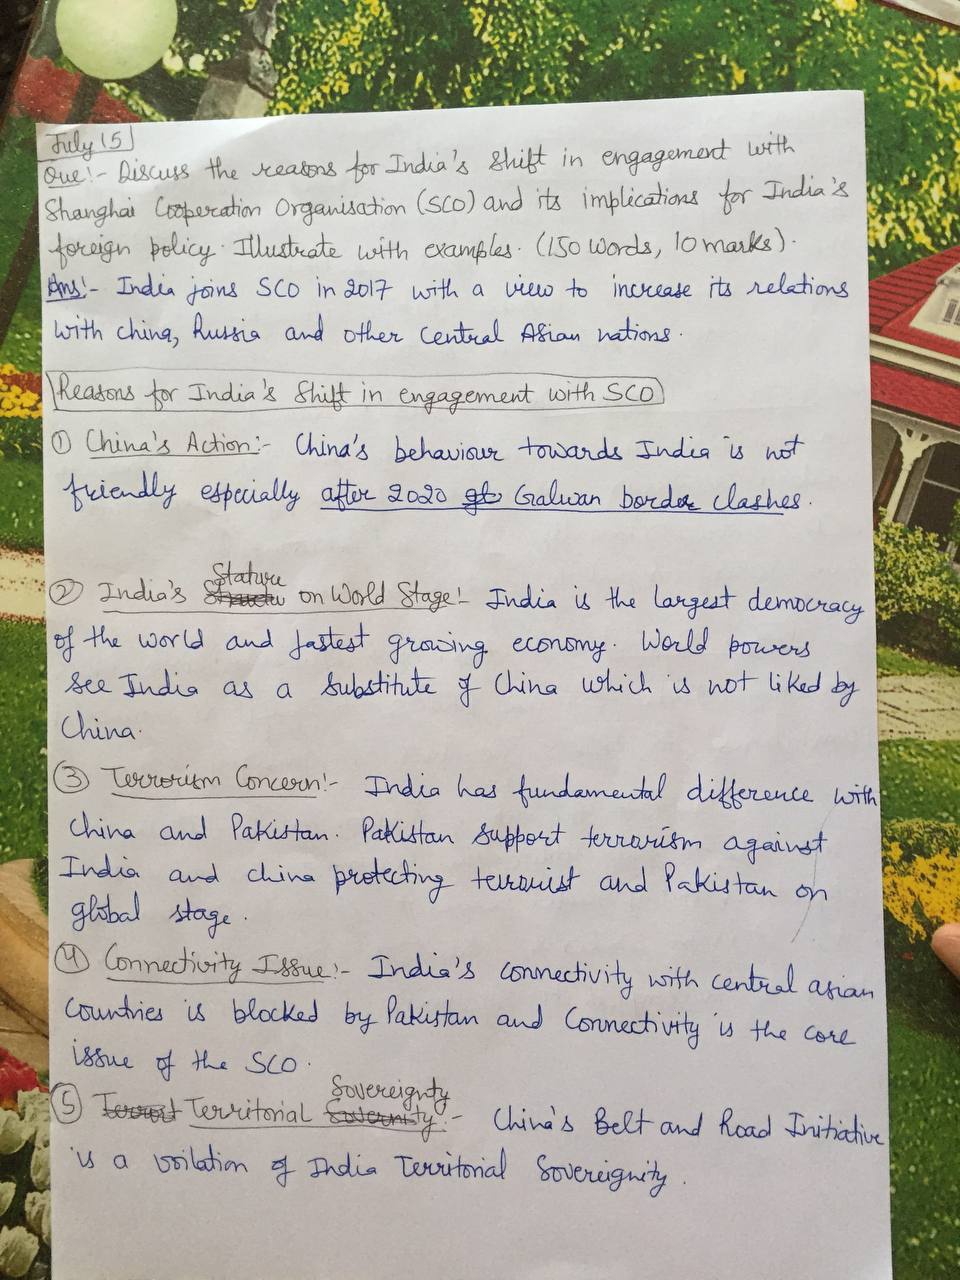 July 15
Que:- Discuss the reasons for India's Shift in engagement with
Shanghai Cooperation Organisation (SCO) and its implications for India's
foreign policy. Illustrate with examples. (150 words, 10 marks).
Ans:- India joins SCO in 2017 with a view to increase its relations
with china, Russia and other Central Asian nations.
Reasons for India's Shift in engagement with SCO
① China's Action:- China's behaviour towards India is not
friendly especially after 2020 Galwan border clashes.
② India's Stature on World Stage:- India is the largest democracy
of the world and fastest growing economy. World powers
see India as a substitute of China which is not liked by
China.
③ Terrorism Concern:- India has fundamental difference with
China and Pakistan. Pakistan support terrorism against
India and china protecting terrorist and Pakistan on
global stage.
④ Connectivity Issue:- India's connectivity with central asian
Countries is blocked by Pakistan and Connectivity is the core
issue of the SCO.
⑤ Territorial Sovereignty:- China's Belt and Road Initiative
is a voilation of India Territorial Sovereignity.